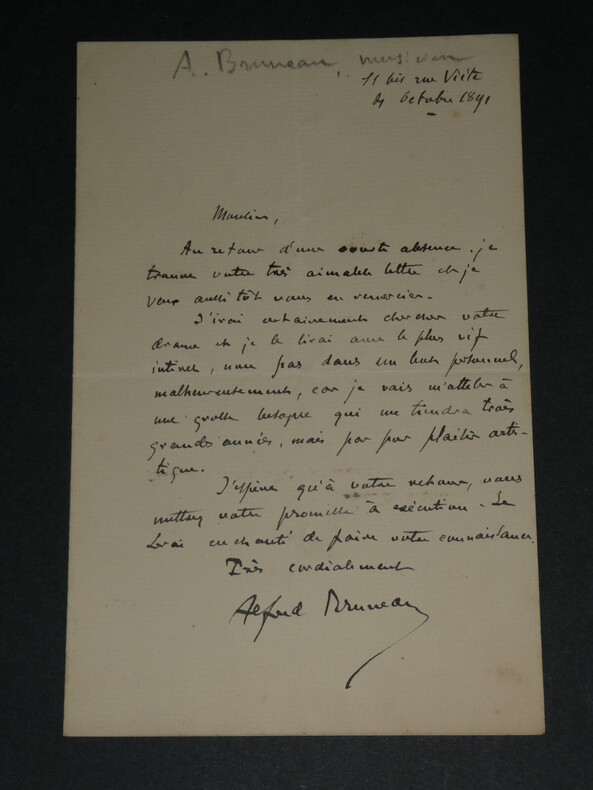 A. Bruneau, musicien
11 bis rue Viète
octobre 1891
Monsieur,
Au retour d'une courte absence, je
trouve votre très aimable lettre et je
veux aussitôt vous en remercier.
J'irai certainement chercher votre
drame et je le lirai avec le plus vif
intérêt, non pas dans un but personnel,
malheureusement, car je vais m'atteler à
une grosse besogne qui me tiendra très
grandes années, mais par pur plaisir artis-
tique.
J'espère qu'à votre retour, vous
mettrez votre promesse à exécution. Je
serai enchanté de faire votre connaissance.
Très cordialement
Alfred Bruneau